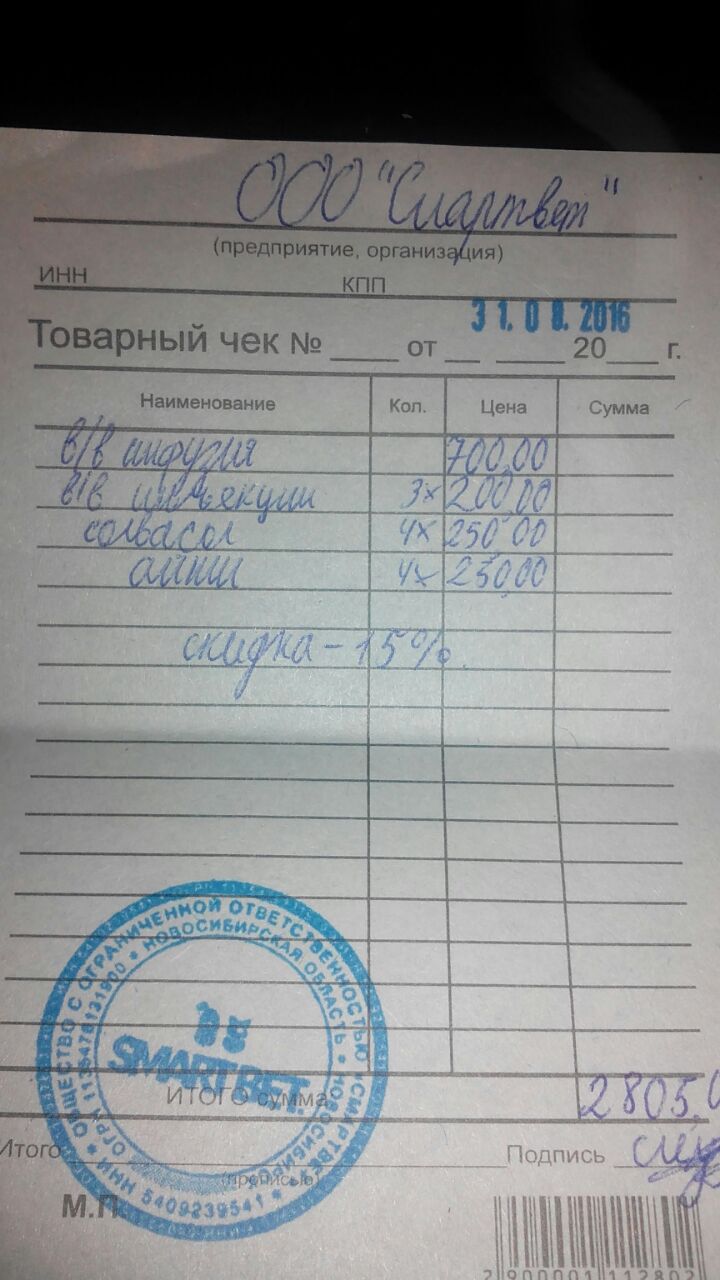 ООО "Смартвет"
(предприятие, организация)
ИНН КПП
31.08.2016
Товарный чек № ____ от __ ____ 20___ г.
Наименование Кол. Цена Сумма
в/в инфузия 700,00
в/в инъекции 3x 200,00
солвасол 4x 250,00
айни 4x 250,00
скидка - 15%.
ОБЩЕСТВО С ОГРАНИЧЕННОЙ ОТВЕТСТВЕННОСТЬЮ "СМАРТВЕТ"
НОВОСИБИРСКАЯ ОБЛАСТЬ
ОГРН 1135476131900
ИНН 5409239541
SMARTВЕТ
ИТОГО сумма 2805.0
Итого Подпись
(прописью)
М.П.
2 900001 112802